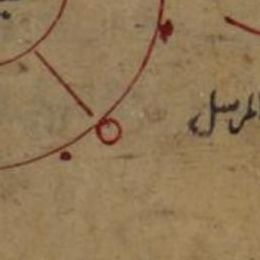 المرسل